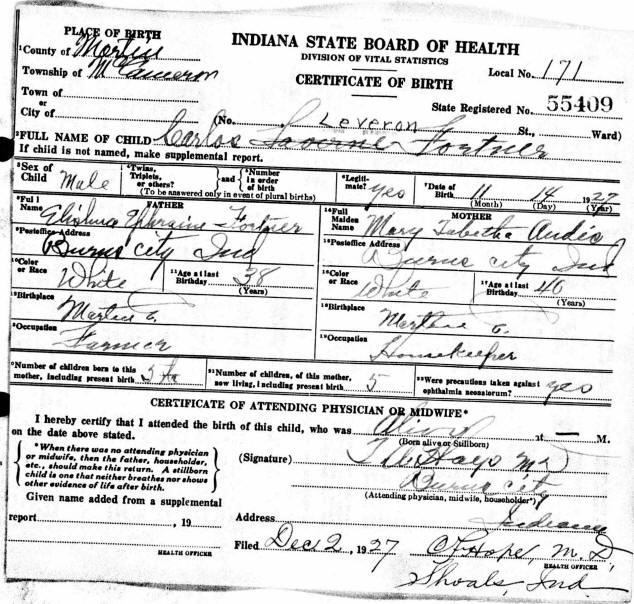 PLACE OF BIRTH
INDIANA STATE BOARD OF HEALTH
DIVISION OF VITAL STATISTICS
CERTIFICATE OF BIRTH
County of Martin
Township of McCameron
Local No. 171
Town of
or
City of
State Registered No. 55409
(No. St., Ward)
Leveron
FULL NAME OF CHILD Carlos Laverne Fortner
If child is not named, make supplemental report.
Sex of Child Male
Twins, Triplets, or others? and Number in order of birth
(To be answered only in event of plural births)
Legitimate? yes
Date of Birth 11 14 1927
(Month) (Day) (Year)
FATHER
Full Name Elishua Ephraine Fortner
Postoffice Address
Burns city Ind
Color or Race White
Age at last Birthday 38 (Years)
Birthplace
Martin C.
Occupation
Farmer
MOTHER
Full Maiden Name Mary Tabitha Andis
Postoffice Address
Burns city Ind
Color or Race White
Age at last Birthday 40 (Years)
Birthplace
Martin C.
Occupation
Housekeeper
Number of children born to this mother, including present birth 5
Number of children, of this mother, now living, including present birth 5
Were precautions taken against ophthalmia neonatorum? yes
CERTIFICATE OF ATTENDING PHYSICIAN OR MIDWIFE*
I hereby certify that I attended the birth of this child, who was Alive at — M.
on the date above stated.
(Born alive or Stillborn)
*When there was no attending physician
or midwife, then the father, householder,
etc., should make this return. A stillborn
child is one that neither breathes nor shows
other evidence of life after birth.
(Signature) Hays MD
Burns city
(Attending physician, midwife, householder*)
Given name added from a supplemental
report , 19
HEALTH OFFICER
Address Indiana
Filed Dec 2, 1927 Hope, M.D.
HEALTH OFFICER
Shoals, Ind.